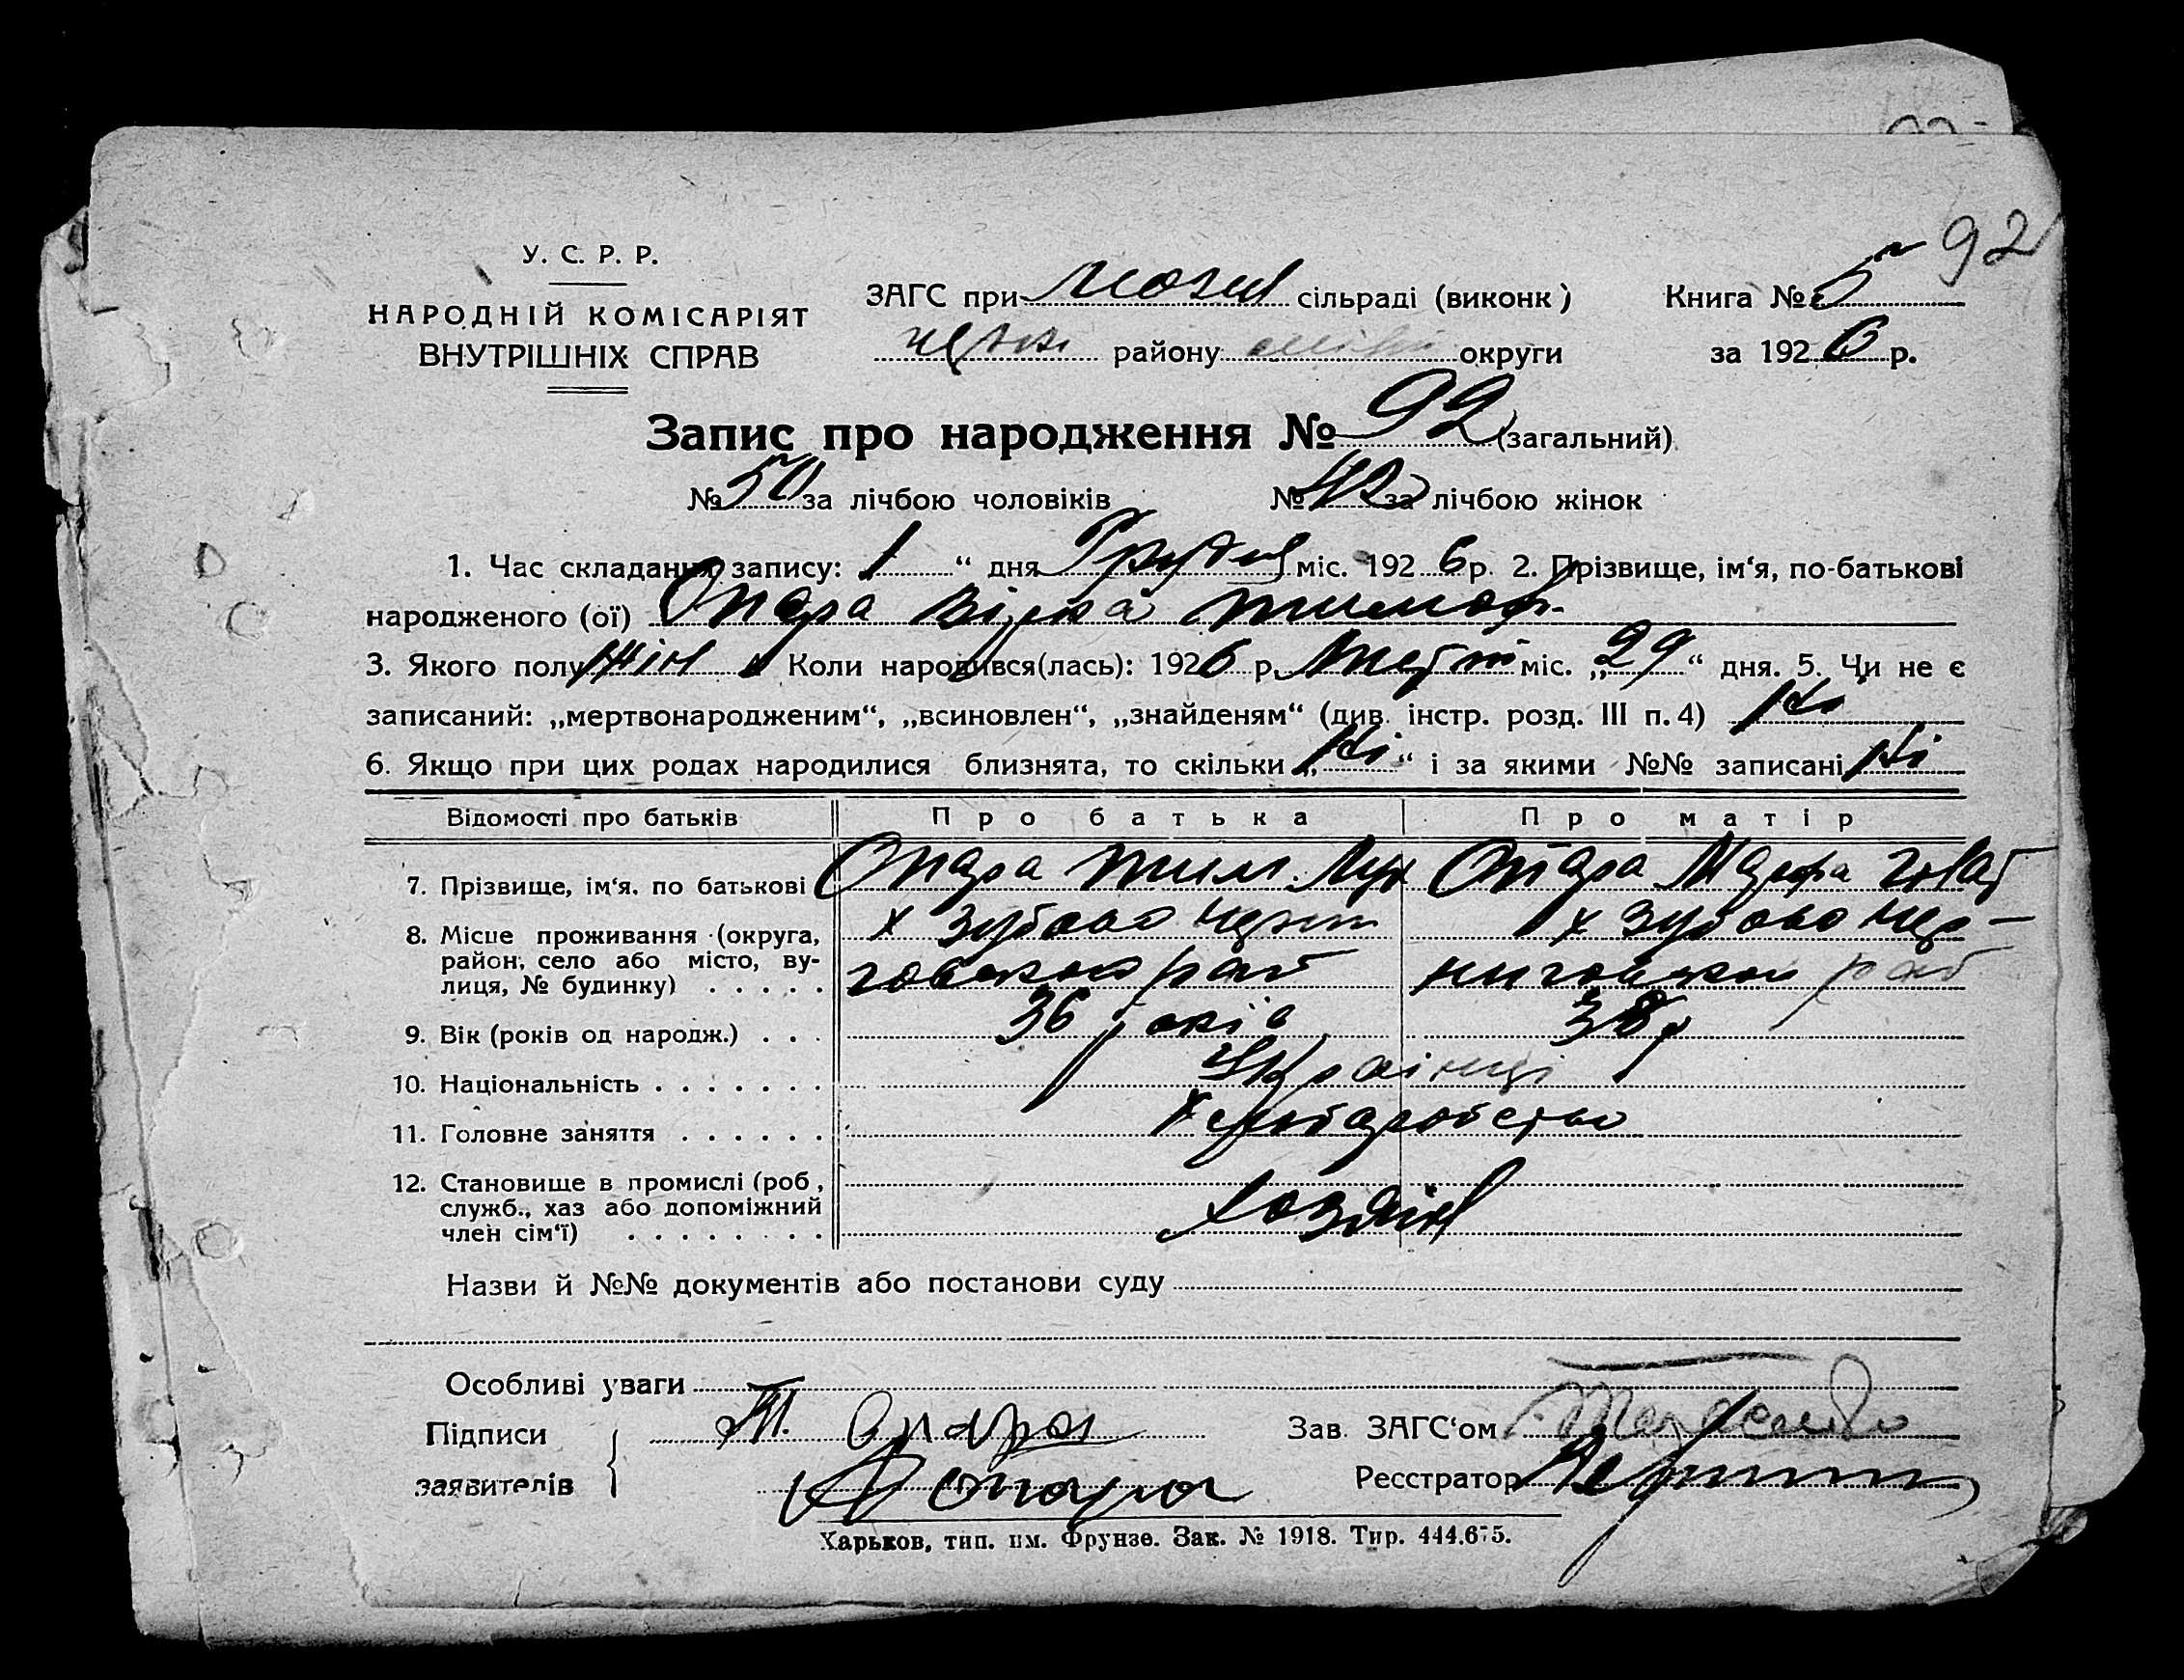 92
У. С. Р. Р.
НАРОДНІЙ КОМІСАРІЯТ
ВНУТРІШНІХ СПРАВ
ЗАГС при сільраді (виконк)
району округи
Книга № 5
за 1926 р.
Запис про народження № 92 (загальний)
№ 50 за лічбою чоловіків № 42 за лічбою жінок
1. Час складання запису: 1 “ дня Грудня міс. 1926 р. 2. Прізвище, ім‘я, по-батькові
народженого (ої) Опара Вірка Тимоф.
3. Якого полу жін 4 Коли народився(лась): 1926 р. міс. „29“ дня. 5. Чи не є
записаний: „мертвонародженим“, „всиновлен“, „знайденям“ (див. інстр. розд. III п. 4) Ні
6. Якщо при цих родах народилися близнята, то скільки „Ні“ і за якими №№ записані Ні
Відомості про батьків Про батька Про матір
7. Прізвище, ім‘я, по батькові Опара Тим. Лук Опара Марфа Гнат
8. Місце проживання (округа, район, село або місто, вулиця, № будинку)
х Зубово
х Зубово
9. Вік (років од народж.) 36 років 38 р
10. Національність Українці
11. Головне заняття
12. Становище в промислі (роб, служб., хаз або допоміжний член сім‘ї) Хозяїн
Назви й №№ документів або постанови суду
Особливі уваги
Підписи
заявителів
Т. Опара
Опара
Зав. ЗАГС‘ом
Реєстратор
Харьков, тип. им. Фрунзе. Зак. № 1918. Тир. 444.675.